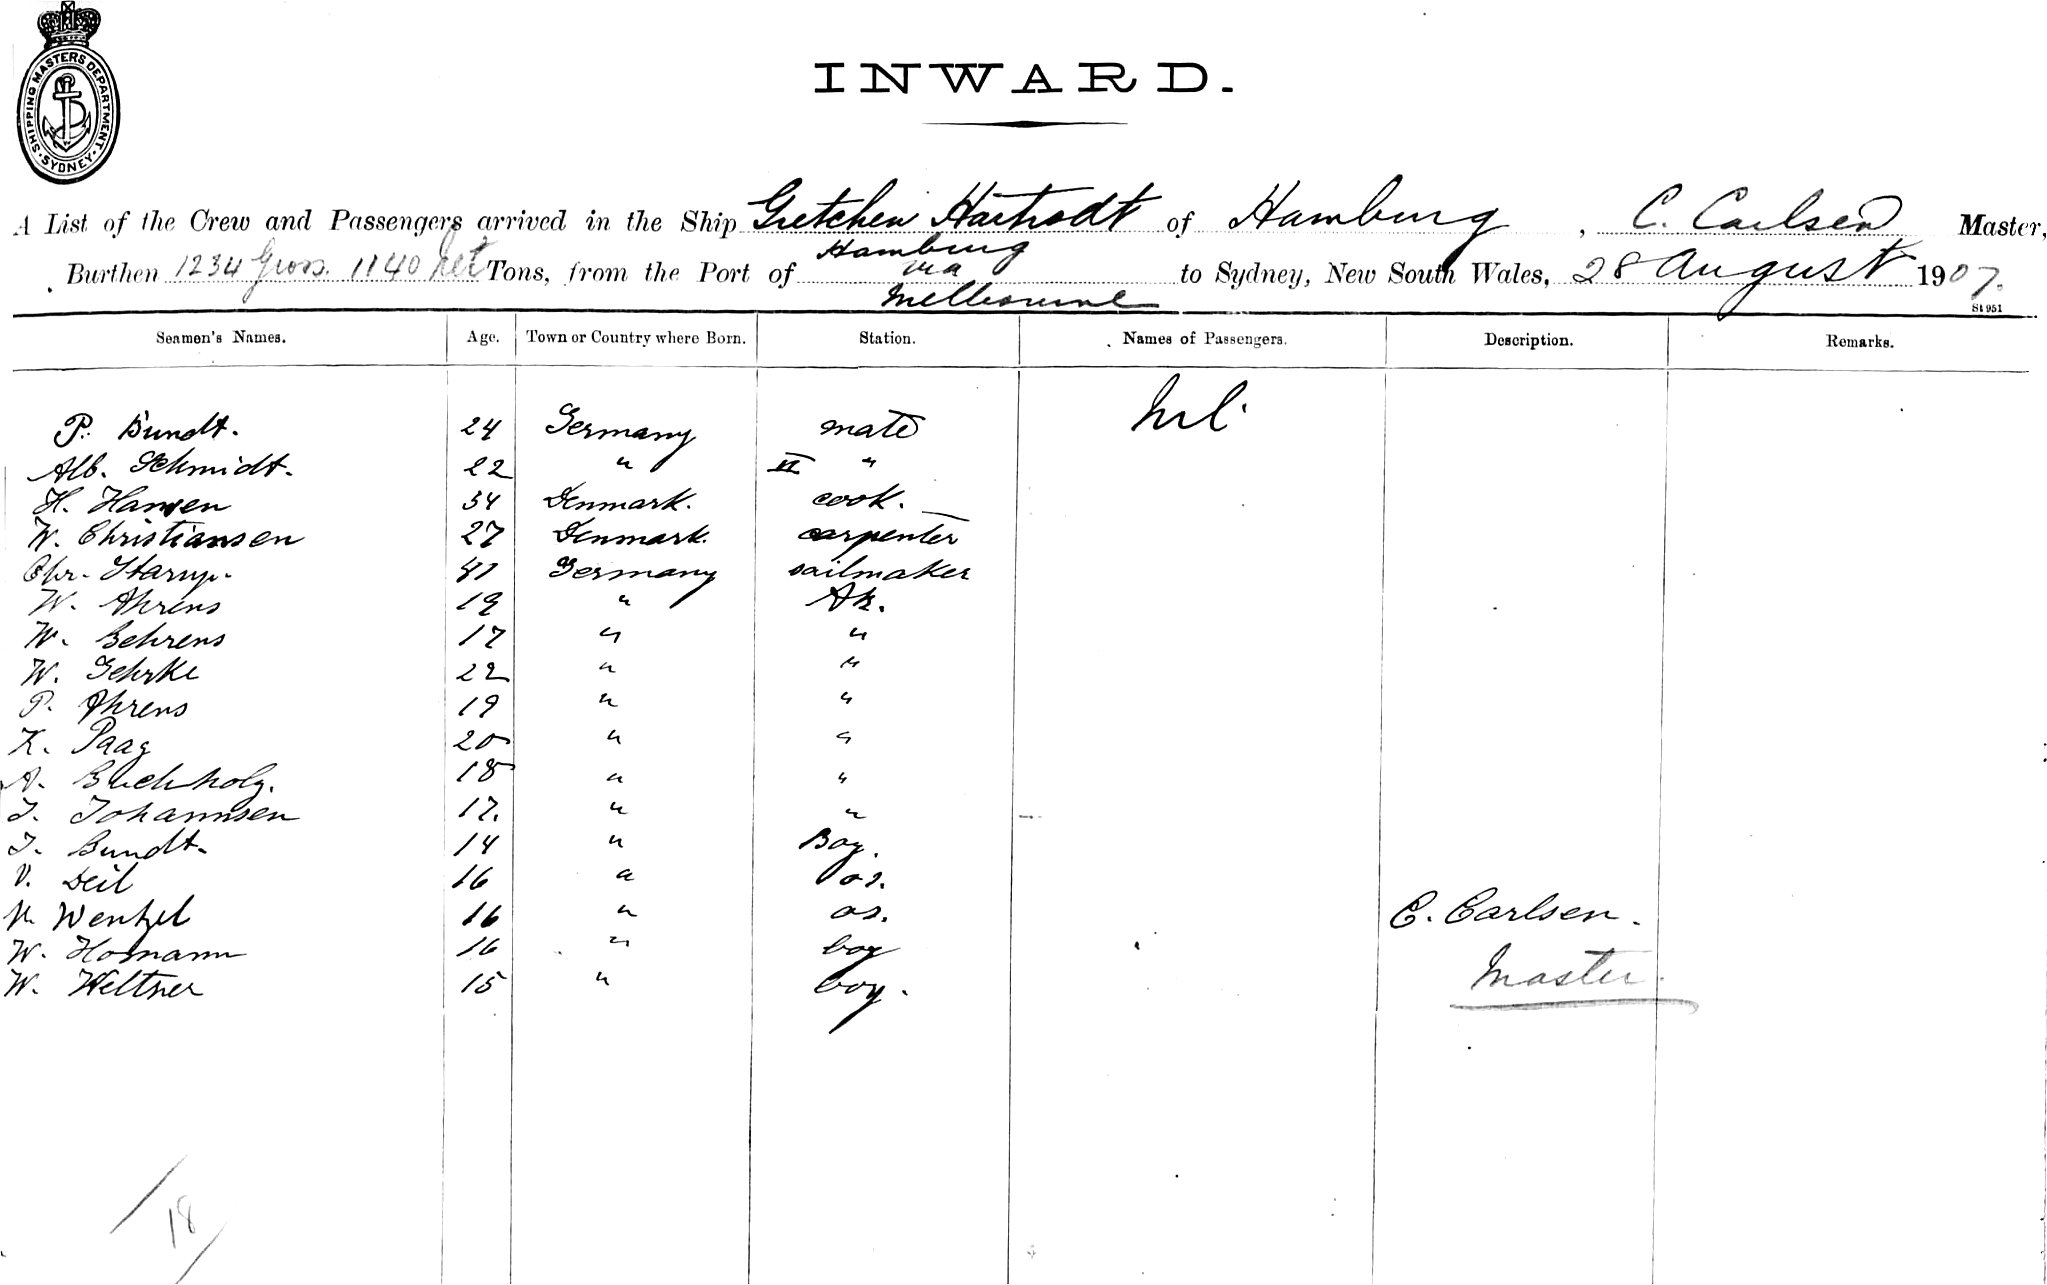 SHIPPING MASTERS DEPARTMENT. SYDNEY
INWARD.
A List of the Crew and Passengers arrived in the Ship Gretchen Hartrodt of Hamburg, C. Carlsen Master,
Burthen 1234 Gross. 1140 Net Tons, from the Port of Hamburg via Melbourne to Sydney, New South Wales, 28 August 1907.
St 951
Seamen's Names. Age. Town or Country where Born. Station. Names of Passengers. Description. Remarks.
Nil
P. Bundt. 24 Germany mate
Alb. Schmidt. 22 " II "
H. Hansen 54 Denmark. cook.
W. Christiansen 27 Denmark. carpenter
Chr. Starup. 41 Germany sailmaker
W. Ahrens 19 " AB.
W. Behrens 17 " "
W. Gehrke 22 " "
P. Ahrens 19 " "
K. Paag 20 " "
A. Buchholz. 18 " "
J. Johannsen 17. " "
J. Bundt. 14 " Boy.
V. Deil 16 " os.
Wentzel 16 " os. C. Carlsen.
W. Homann 16 " boy
W. Weltner 15 " boy. Master.
18